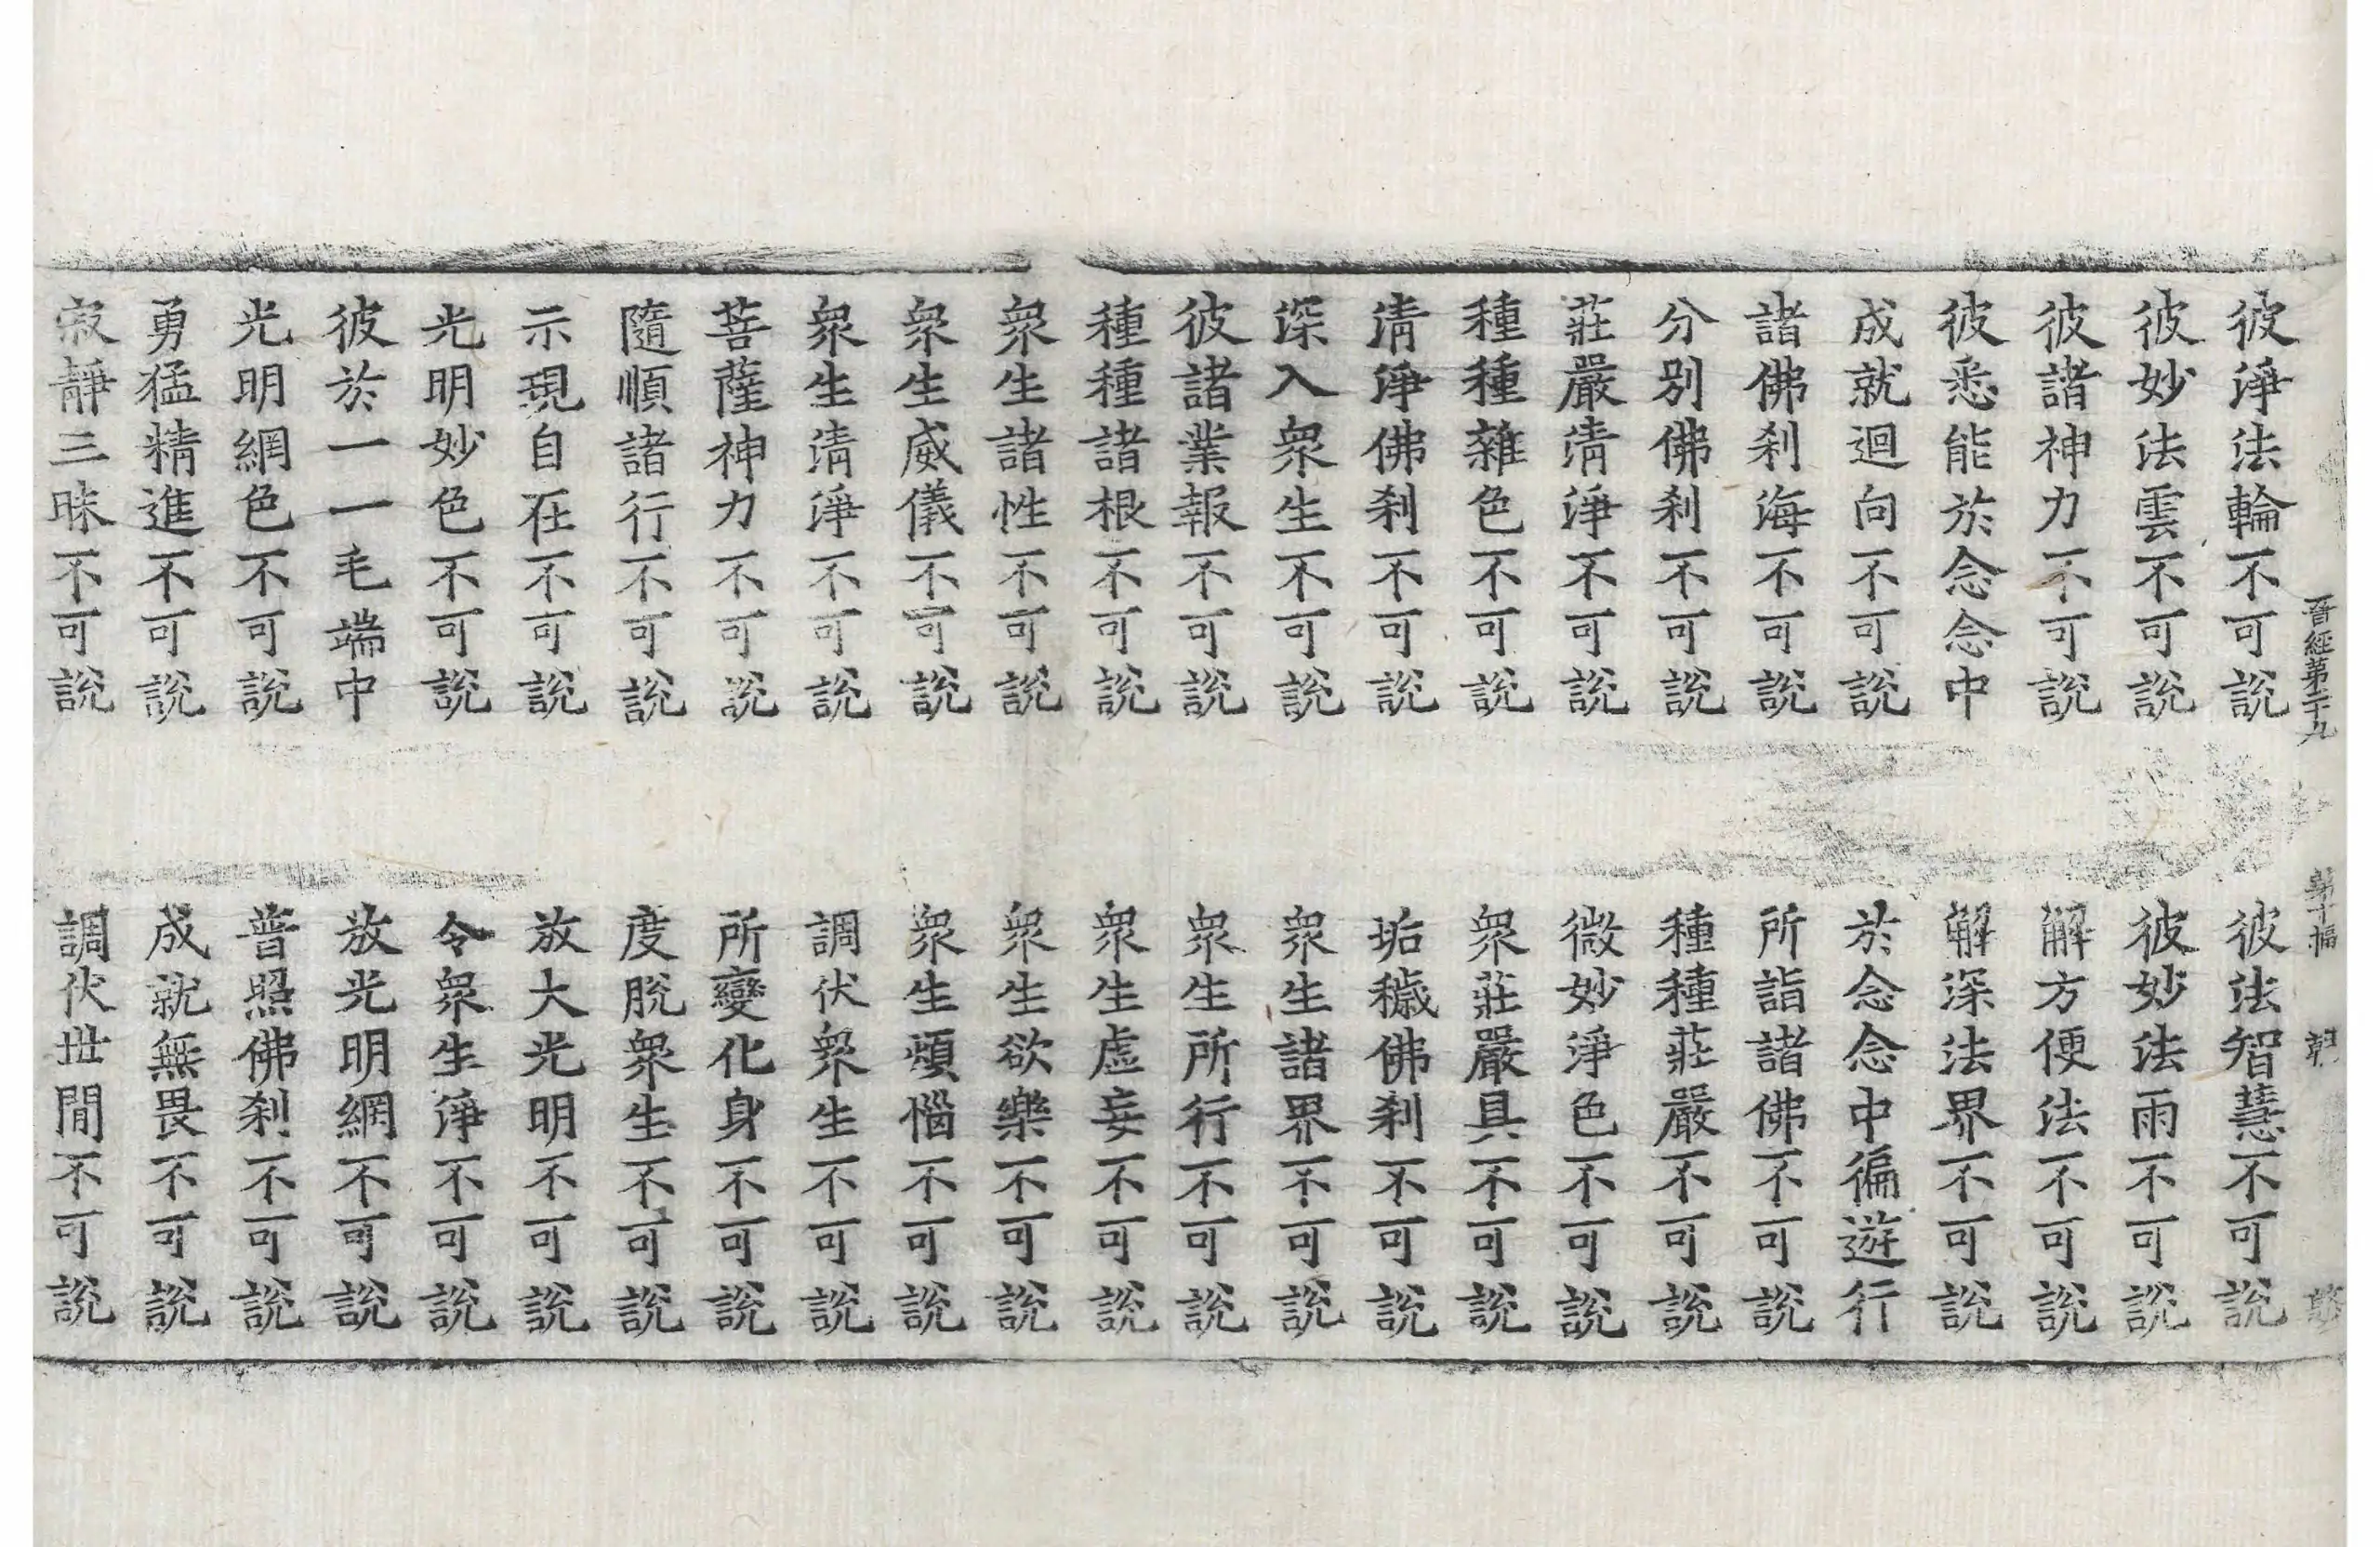 晉經第二十九 第十幅 朝
彼淨法輪不可說 彼法智慧不可說
彼妙法雲不可說 彼妙法雨不可說
彼諸神力不可說 解方便法不可說
彼悉能於念念中 解深法界不可說
成就迴向不可說 於念念中徧遊行
諸佛刹海不可說 所詣諸佛不可說
分別佛刹不可說 種種莊嚴不可說
莊嚴清淨不可說 微妙淨色不可說
種種雜色不可說 衆莊嚴具不可說
清淨佛刹不可說 垢穢佛刹不可說
深入衆生不可說 衆生諸界不可說
彼諸業報不可說 衆生所行不可說
種種諸根不可說 衆生虛妄不可說
衆生諸性不可說 衆生欲樂不可說
衆生威儀不可說 衆生煩惱不可說
衆生清淨不可說 調伏衆生不可說
菩薩神力不可說 所變化身不可說
隨順諸行不可說 度脫衆生不可說
示現自在不可說 放大光明不可說
光明妙色不可說 令衆生淨不可說
彼於一一毛端中 放光明網不可說
光明網色不可說 普照佛刹不可說
勇猛精進不可說 成就無畏不可說
寂靜三昧不可說 調伏世間不可說